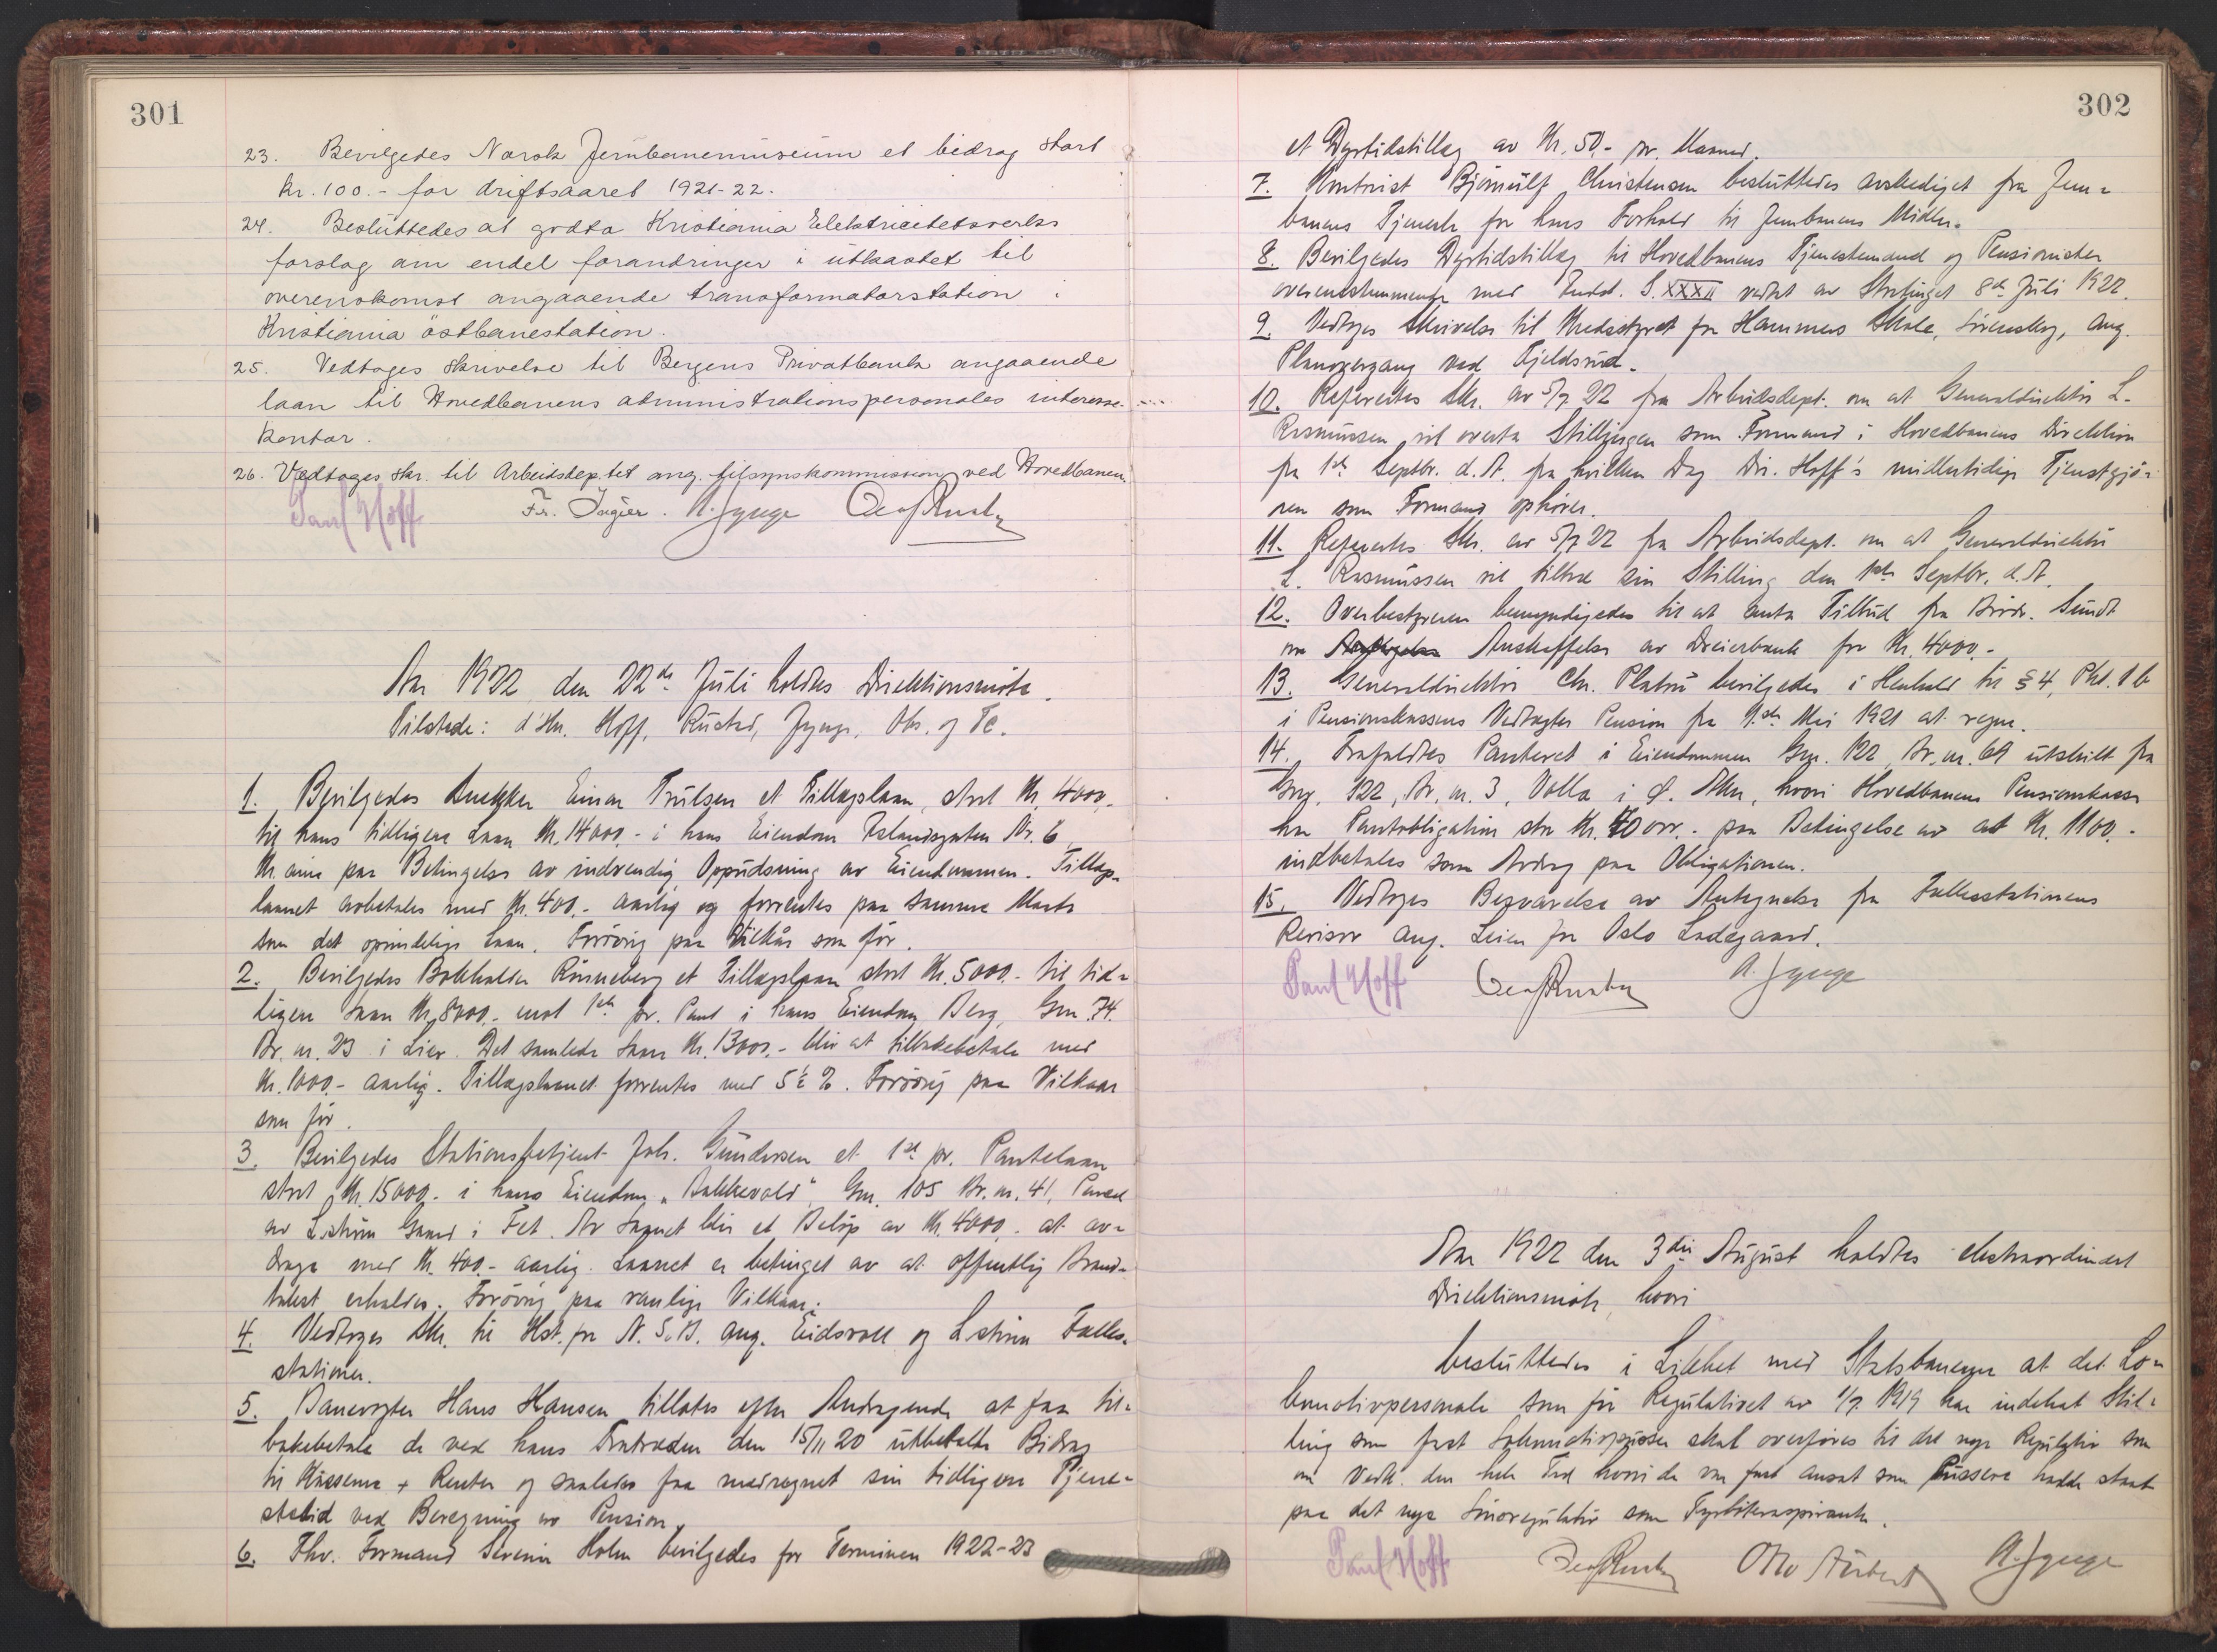 301
23. Bevilgedes Norsk Jernbanemuseum et bidrag stort
kr. 100.- for driftsaaret 1921-22.
24. Besluttedes at godta Kristiania Elektricitetsverks
forslag om endel forandringer i utkastet til
overenskomst angaaende transformatorstation i
Kristiania östbanestation.
25. Vedtoges skrivelse til Bergens Privatbank angaaende
laan til Hovedbanens administrationspersonales interesse-
kontor.
26. Vedtoges skr. til Arbeidsdeptet ang. tilsynskommission ved Hovedbanen.
Paul Hoff Fr. Jäger. A. Jynge
Aar 1922 den 22de Juli holdtes Direktionsmöte.
Tilstede: d'Hrr. Hoff, Rustad, Jynge, Obs. og Tc.
1. Bevilgedes Einar Trulsen et Tillægslaan, stort Kr. 4000,-
til hans tidligere Laan Kr. 14000,- i hans Eiendom Islandsgaten Nr. 6
Kr.ania paa Betingelse av indvendig Oppudsning av Eiendommen. Tillægs-
laanet avbetales med Kr. 400,- aarlig og forrentes paa samme Maate
som det oprindelige Laan. Forövrig paa Vilkår som för.
2. Bevilgedes Bokholder Rönneberg et Tillægslaan stort Kr. 5000,- til tid-
ligere Laan Kr. 8000,- mot 1ste pr. Pant i hans Eiendom Berg, Gnr. 74.
Br. nr. 23 i Lier. Det samlede Laan Kr. 13000,- blir at tilbakebetale med
Kr. 1000,- aarlig. Tillægslaanet forrentes med 5½ %. Forövrig paa Vilkaar
som för.
3. Bevilgedes Stationsbetjent Joh. Gundersen et 1ste pr. Pantelaan
stort Kr. 15000,- i hans Eiendom "Bakkevold", Gnr. 105 Br. nr. 41, Parcel
av L.ström Gaard i Fet. Av Laanet blir et Belöp av Kr. 4000,- at av-
drage med Kr. 400,- aarlig. Laanet er betinget av at offentlig Brand-
takst erholdes. Forövrig paa vanlige Vilkaar.
4. Vedtoges Skr. til Hst. for N.S.B. ang. Eidsvoll og L.ström Fælles-
stationer.
5. Banevogter Hans Hansen tillates efter Andragende at faa til-
bakebetale de ved hans Fratræden den 15/11 20 utbetalte Bidrag
til Kasserne + Renter og saaledes faa medregnet sin tidligere Tjene-
stetid ved Beregning av Pension.
6. Fhv. Formand Severin Holm bevilgedes for Terminen 1922-23
302
et Dyrtidstillæg av Kr. 50,- pr. Maaned.
7. Kontorist Björnulf Christensen besluttedes avskediget fra Jern-
banens Tjeneste for hans Forhold til Jernbanens Midler.
8. Bevilgedes Dyrtidstillæg til Hovedbanens Tjenestemænd og Pensionister
overensstemmende med Indst. S. XXXII vedtat av Stortinget 8de Juli 1922.
9. Vedtoges Skrivelse til Kredsstyret for Hammers Skole, Lörenskog, ang.
Planovergang ved Fjeldsrud.
10. Refereertes Skr. av 5/7 22 fra Arbeidsdept. om at Generaldirektör L.
Rasmussen vil overta Stillingen som Formand i Hovedbanens Direktion
fra 1ste Septbr. d. A. fra hvilken Dag Dir. Hoff's midlertidige Tjenestgjö-
ren som Formand ophörer.
11. Refereertes Skr. av 5/7 22 fra Arbeidsdept. om at Generaldirektör
L. Rasmussen vil tiltræ sin Stilling den 1ste Septbr. d. A.
12. Overbestyreren bemyndigedes til at anta Tilbud fra Brödr. Sundt
om Anskaffelse av Dreierbænk for Kr. 4000,-
13. Generaldirektör Chr. Platou bevilgedes i Henhold til § 4, Pkt. 1 b
i Pensionskassens Vedtægter Pension fra 1ste Mai 1921 at regne.
14. Frafaldtes Panteret i Eiendommen Gnr. 122, Br. nr. 69 utskilt fra
Gnr. 122, Br. nr. 3, Volla i Ø. Aker, hvori Hovedbanens Pensionskasse
har Pantobligation stor Kr. paa Betingelse av at Kr. 1100,-
indbetales som Avdrag paa Obligationen.
15. Vedtoges Besvarelse av Antegnelse fra Fællesstationens
Revisor ang. Leien for Oslo Ladegaard.
Paul Hoff A. Jynge
Aar 1922 den 3die August holdtes ekstraordinært
Direktionsmöte, hvori
besluttedes i Likhet med Statsbanerne at det Lo-
komotivpersonale som för Regulativet av 1/7 1919 har indehat Stil-
ling som fast Lokomotivpudser skal overföres til det nye Regulativ som
om Vedk. den hele Tid hvori de var fast ansat som Pudsere hadde staat
paa det nye Lönsregulativ som Fyrböteraspiranter.
Paul Hoff Otto Aubert A. Jynge